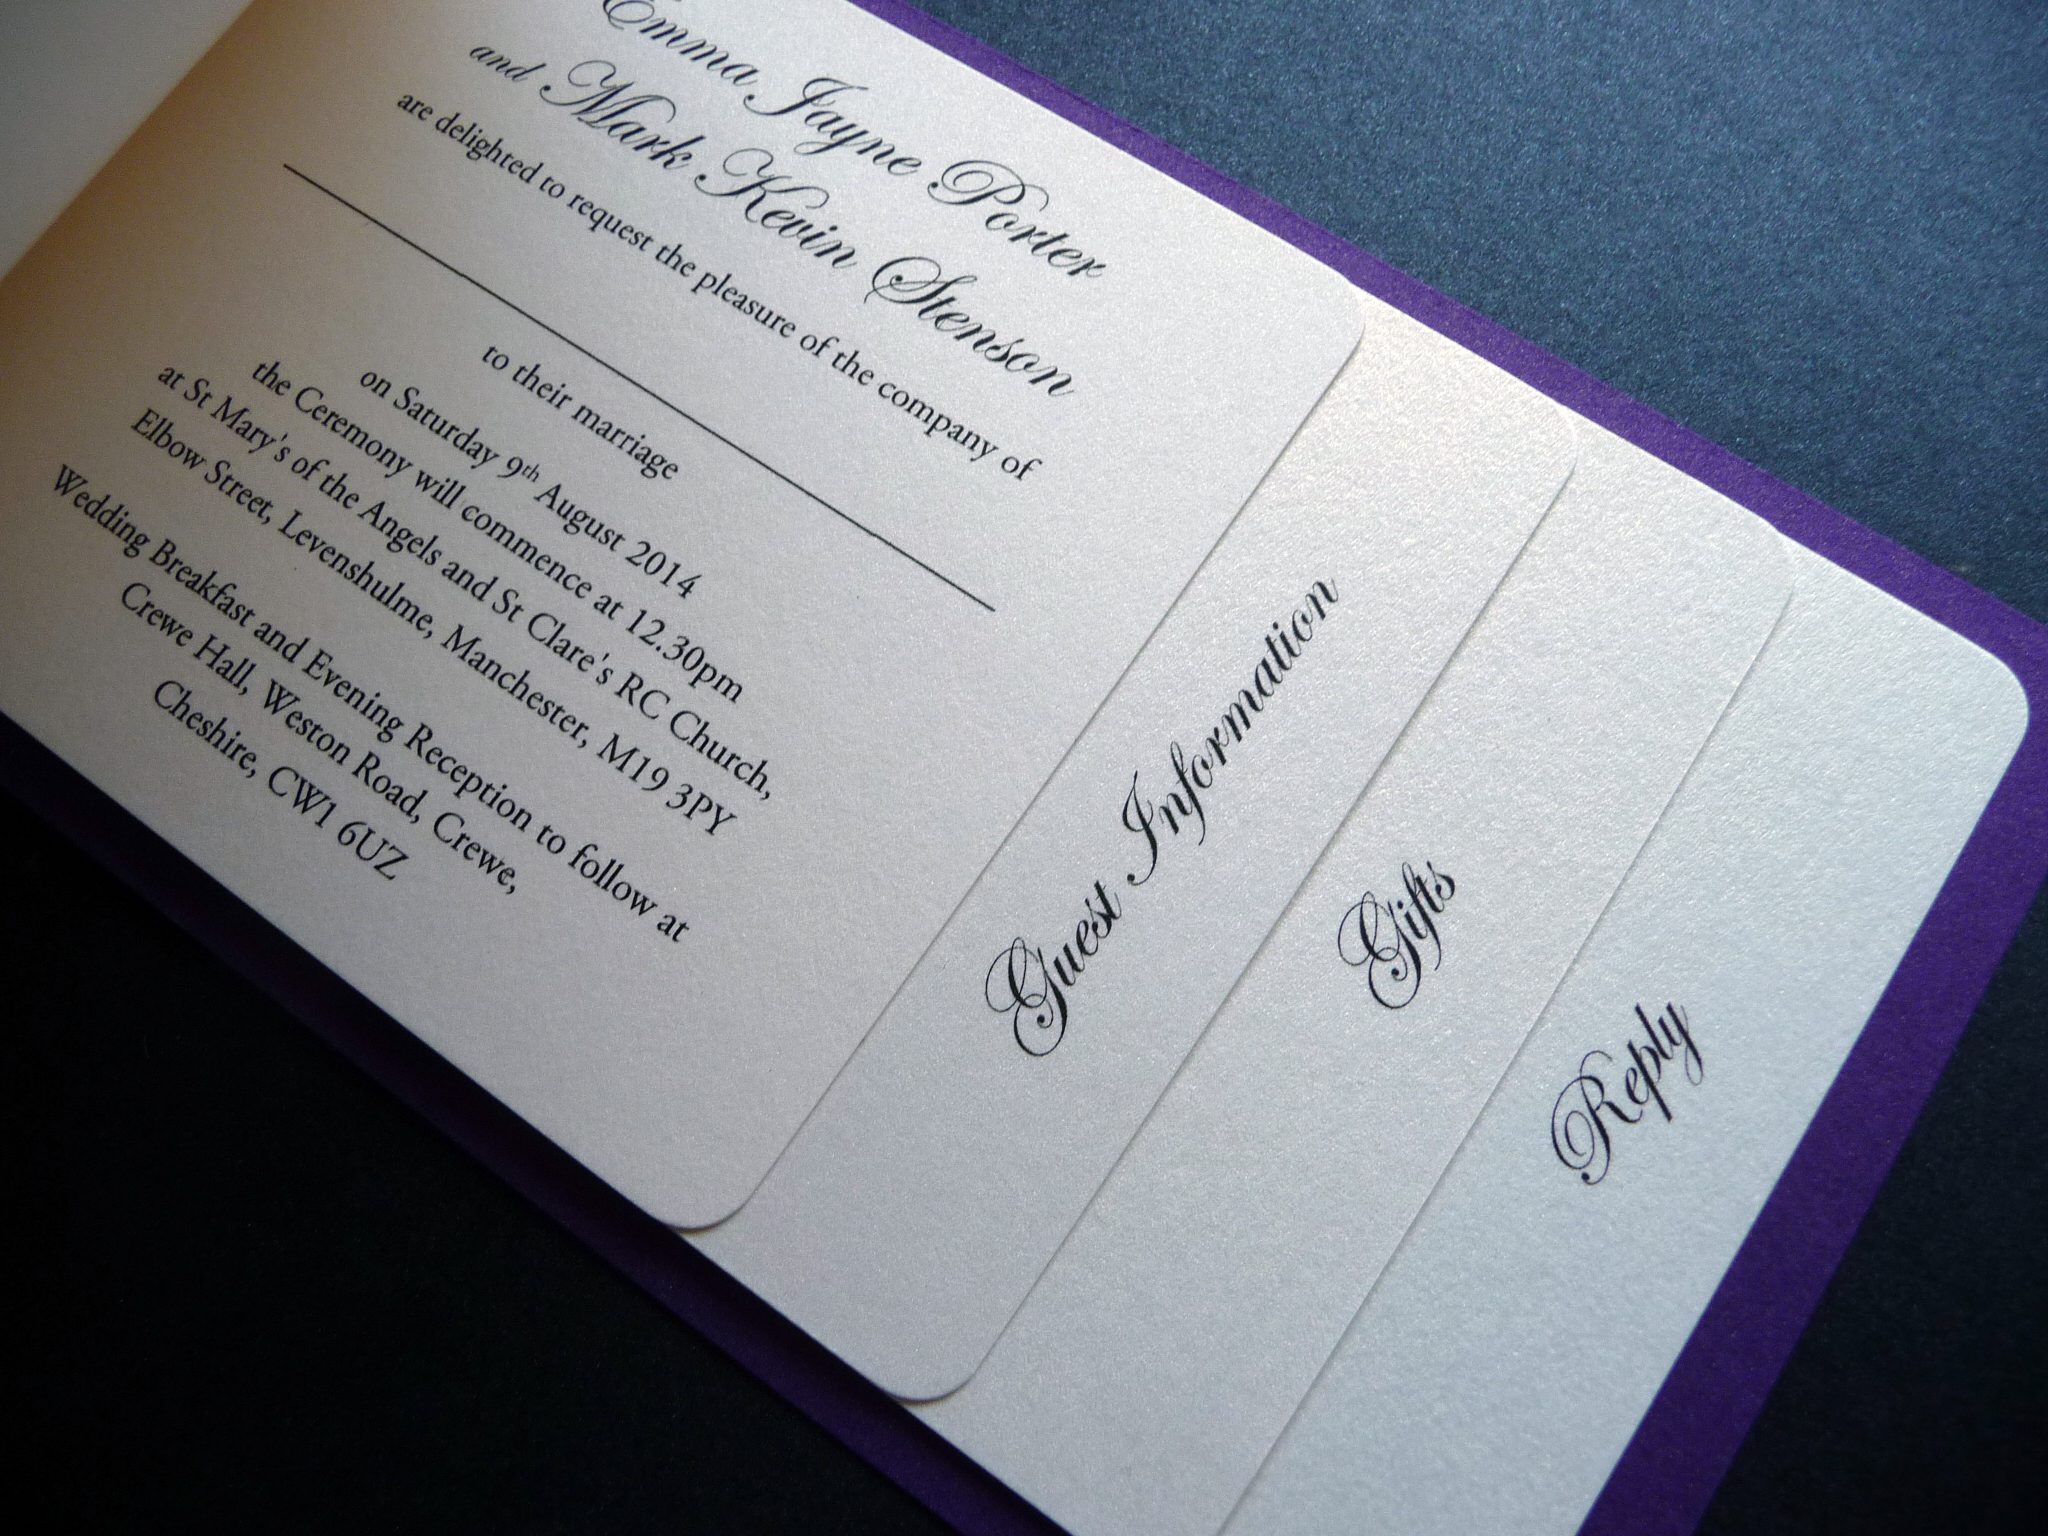 Emma Jayne Porter
and Mark Kevin Stenson
are delighted to request the pleasure of the company of
to their marriage
on Saturday 9th August 2014
the Ceremony will commence at 12.30pm
at St Mary's of the Angels and St Clare's RC Church,
Elbow Street, Levenshulme, Manchester, M19 3PY
Wedding Breakfast and Evening Reception to follow at
Crewe Hall, Weston Road, Crewe,
Cheshire, CW1 6UZ
Guest Information
Gifts
Reply